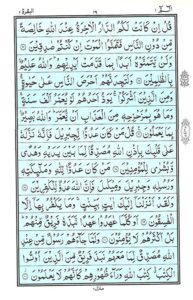 البقرة ٢ ١٦ الٓمّٓ ١
قُلْ اِنْ كَانَتْ لَكُمُ الدَّارُ الْاٰخِرَةُ عِنْدَ اللّٰهِ خَالِصَةً
مِّنْ دُوْنِ النَّاسِ فَتَمَنَّوُا الْمَوْتَ اِنْ كُنْتُمْ صٰدِقِيْنَ
وَلَنْ يَّتَمَنَّوْهُ اَبَدًۢا بِمَا قَدَّمَتْ اَيْدِيْهِمْ وَاللّٰهُ عَلِيْمٌۢ
بِالظّٰلِمِيْنَ وَلَتَجِدَنَّهُمْ اَحْرَصَ النَّاسِ عَلٰى حَيٰوةٍ
وَمِنَ الَّذِيْنَ اَشْرَكُوْا يَوَدُّ اَحَدُهُمْ لَوْ يُعَمَّرُ اَلْفَ سَنَةٍ
وَمَا هُوَ بِمُزَحْزِحِهٖ مِنَ الْعَذَابِ اَنْ يُّعَمَّرَ وَاللّٰهُ بَصِيْرٌۢ
بِمَا يَعْمَلُوْنَ قُلْ مَنْ كَانَ عَدُوًّا لِّجِبْرِيْلَ فَاِنَّهٗ نَزَّلَهٗ
عَلٰى قَلْبِكَ بِاِذْنِ اللّٰهِ مُصَدِّقًا لِّمَا بَيْنَ يَدَيْهِ وَهُدًى
وَّبُشْرٰى لِلْمُؤْمِنِيْنَ مَنْ كَانَ عَدُوًّا لِّلّٰهِ وَمَلٰٓئِكَتِهٖ
وَرُسُلِهٖ وَجِبْرِيْلَ وَمِيْكٰىلَ فَاِنَّ اللّٰهَ عَدُوٌّ لِّلْكٰفِرِيْنَ
وَلَقَدْ اَنْزَلْنَآ اِلَيْكَ اٰيٰتٍۢ بَيِّنٰتٍ وَمَا يَكْفُرُ بِهَآ اِلَّا
الْفٰسِقُوْنَ اَوَكُلَّمَا عٰهَدُوْا عَهْدًا نَّبَذَهٗ فَرِيْقٌ مِّنْهُمْ بَلْ
اَكْثَرُهُمْ لَا يُؤْمِنُوْنَ وَلَمَّا جَآءَهُمْ رَسُوْلٌ مِّنْ عِنْدِ
اللّٰهِ مُصَدِّقٌ لِّمَا مَعَهُمْ نَبَذَ فَرِيْقٌ مِّنَ الَّذِيْنَ اُوْتُوا
الْكِتٰبَ كِتٰبَ اللّٰهِ وَرَآءَ ظُهُوْرِهِمْ كَاَنَّهُمْ لَا يَعْلَمُوْنَ
منزل ١